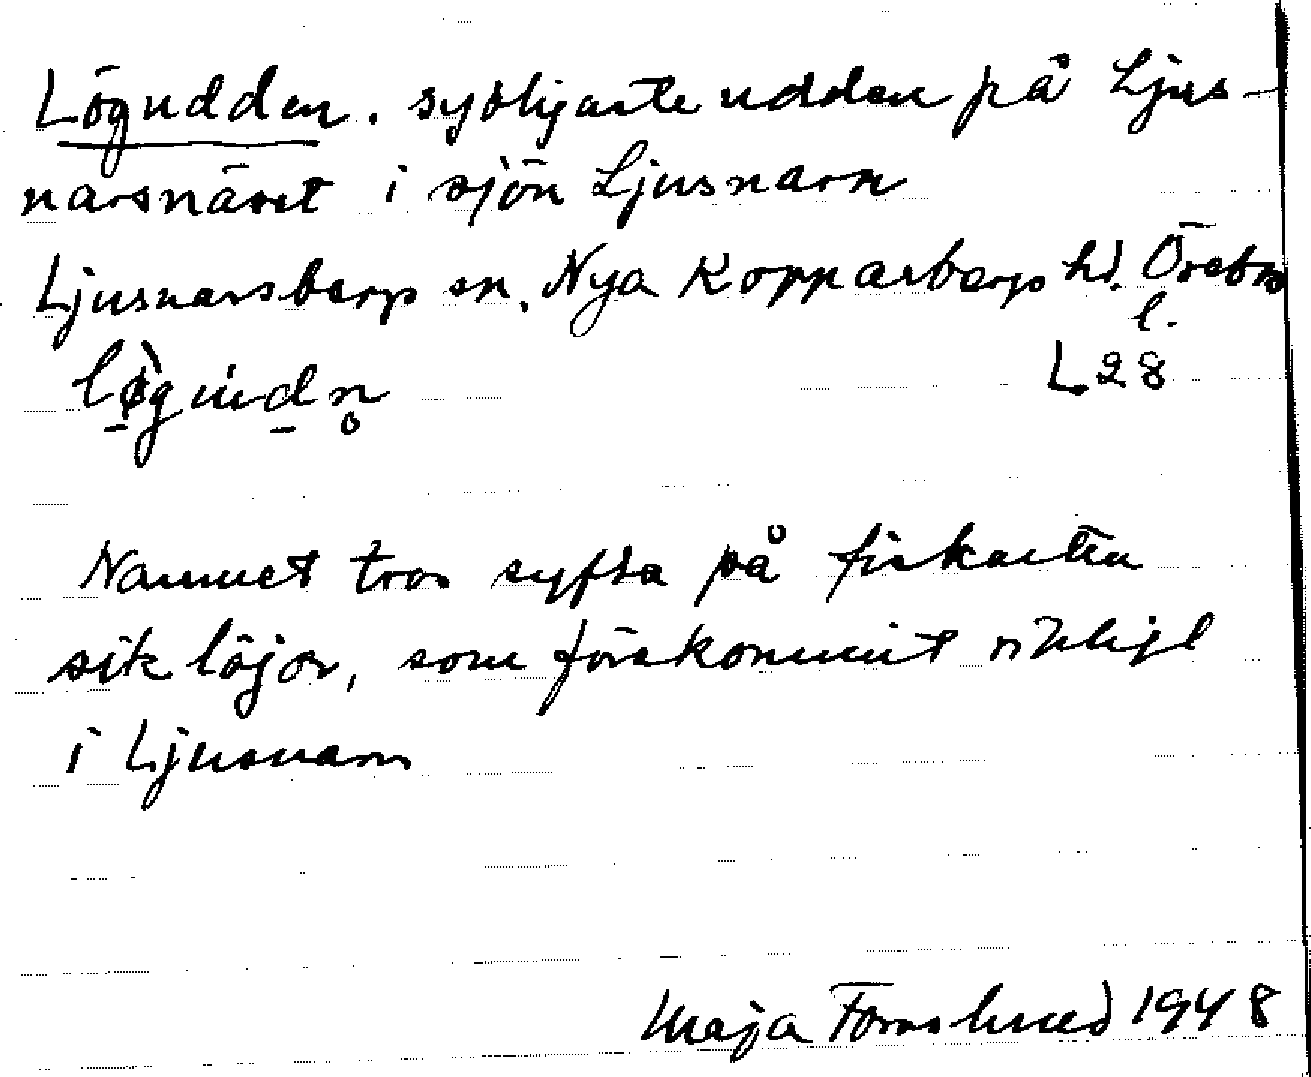 Lögudden. sydligaste udden på Ljus-
narsnäset i sjön Ljusnarn
Ljusnarsbergs sn. Nya Kopparbergs hd. Örebro
l.
løgùdn̥ L28
Namnet tros syfta på fiskarten
siklöjor, som förekommit rikligt
i Ljusnarn
Maja Forsslund 1948